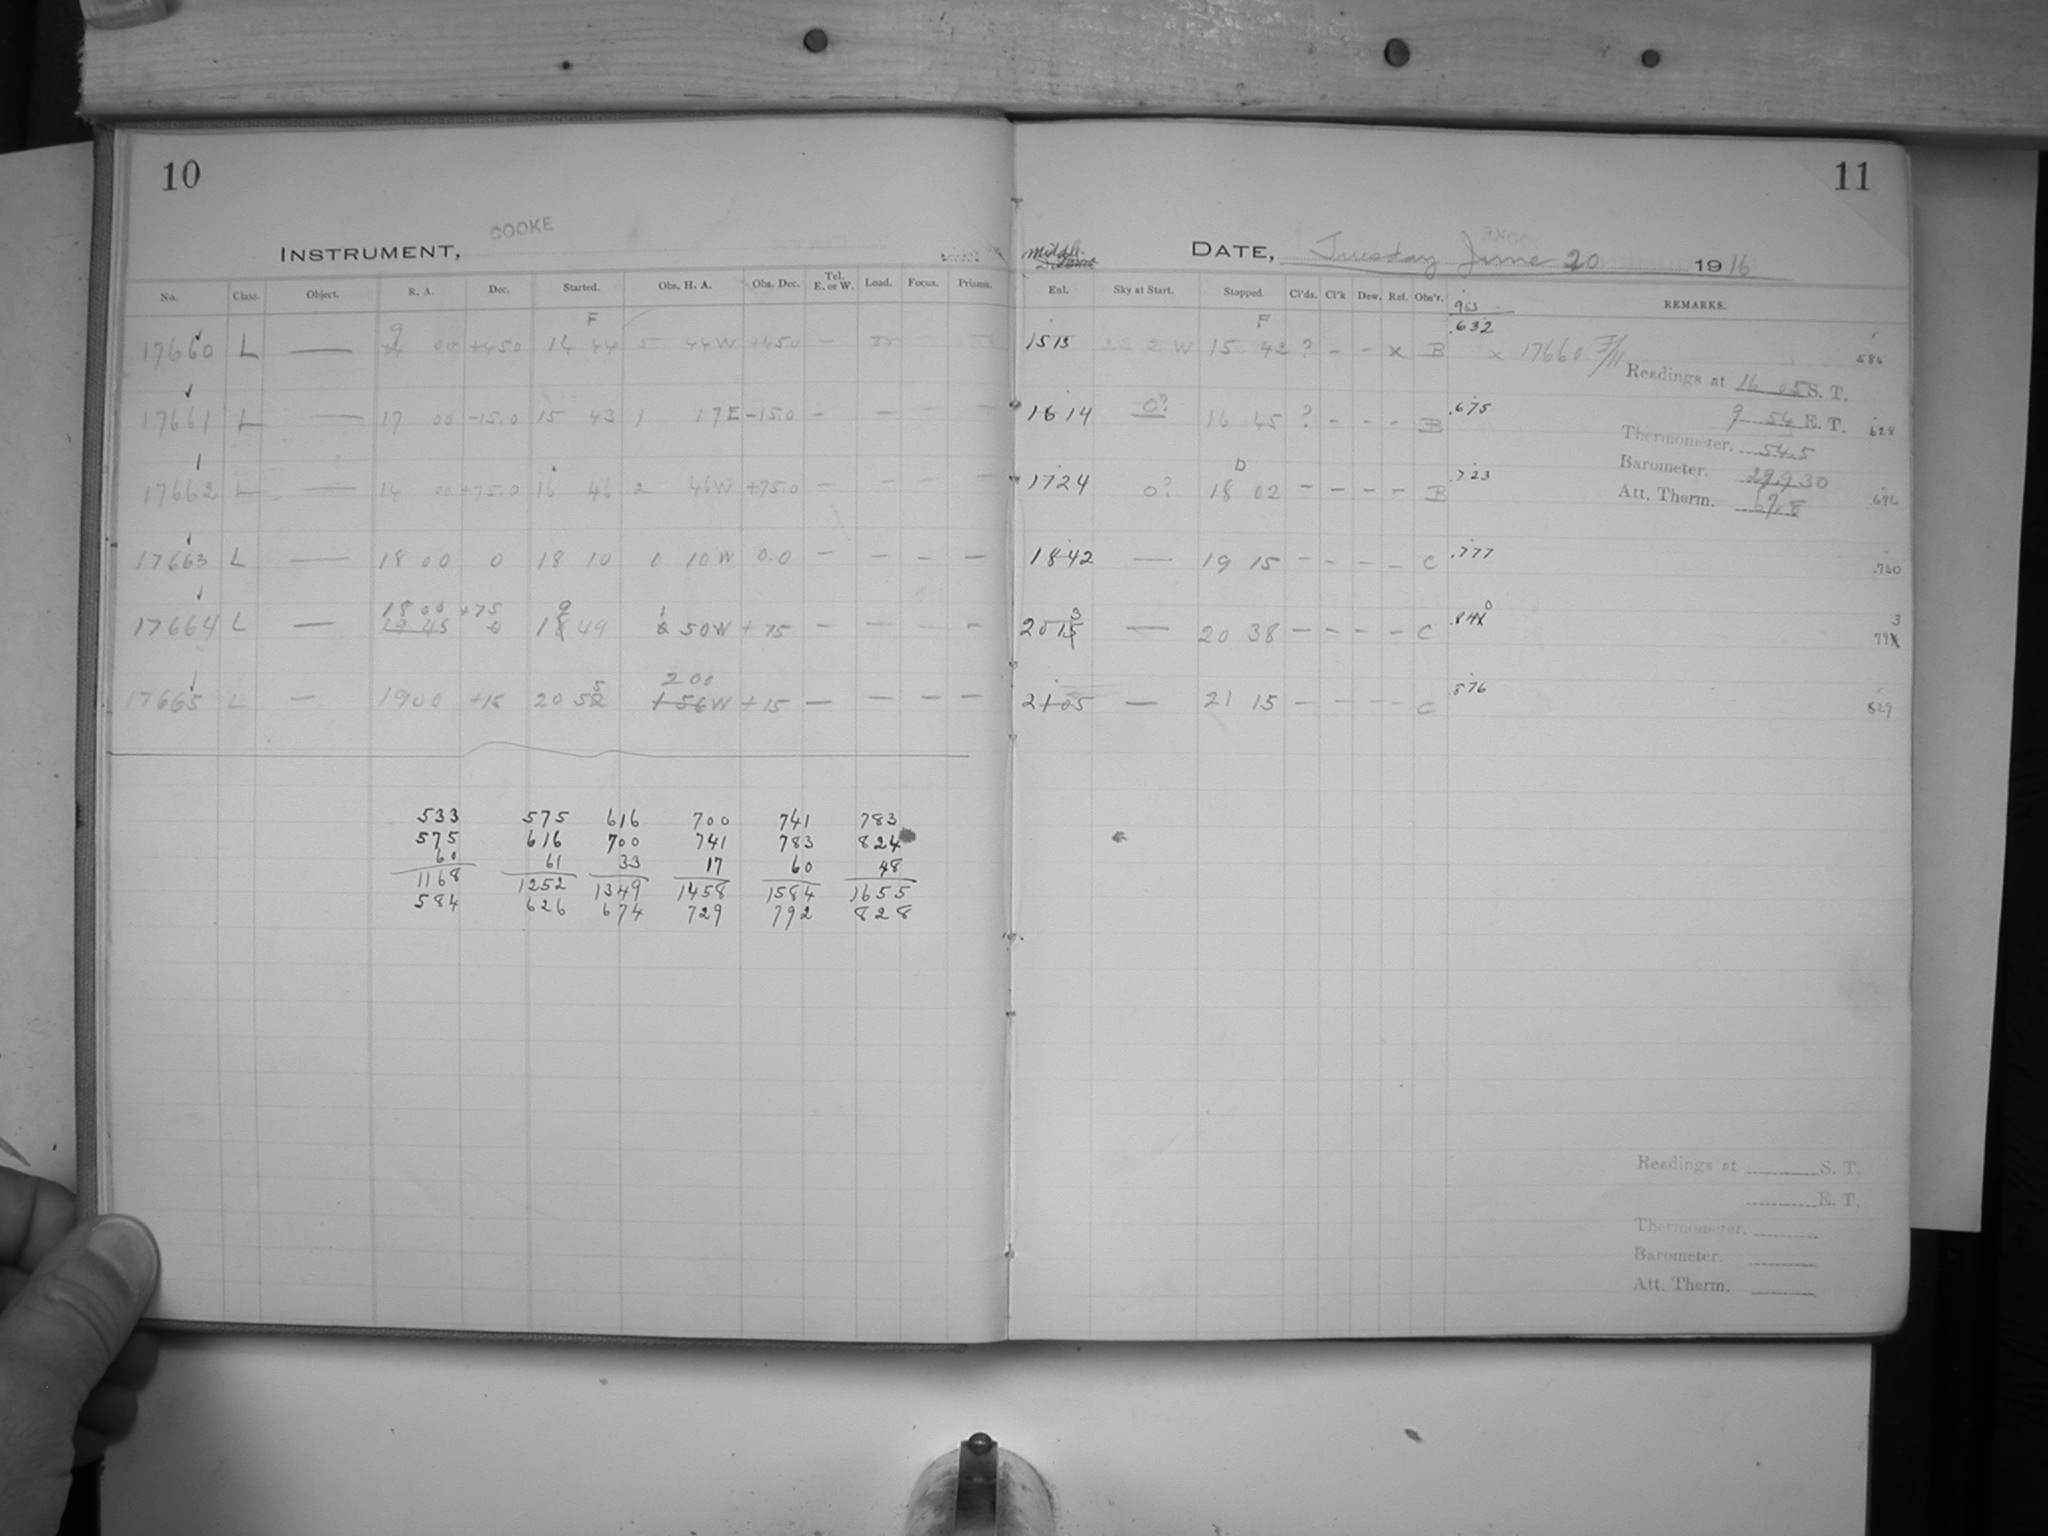 10
COOKE
INSTRUMENT,
No. Class. Object. R. A. Dec. Started. Obs. H. A. Obs. Dec. Tel. E. or W. Load. Focus. Prisms.
F
17660 L — 9 00 +45.0 14 44 5 44 W +45.0 –
17661 L — 17 00 -15.0 15 43 1 17 E -15.0 – – – –
17662 L — 14 00 +75.0 16 46 2 46 W +75.0 – – – –
17663 L — 18 00 0 18 10 0 10 W 0.0 – – – –
18 00 +75 9 1
17664 L — 19 45 0 18 49 50 W +75 – – – –
5 2 00
17665 L — 19 00 +15 20 52 1 56 W +15 – – – –
533 575 616 700 741 783
575 616 700 741 783 824
60 61 33 17 60 48
1168 1252 1349 1458 1584 1655
584 626 674 729 792 828
11
Middle
DATE, Tuesday June 20 1916
Eal. Sky at Start. Stopped. Cl'ds. Cl'k Dew. Ref. Obs'r. REMARKS.
953
F .632
15 13 15 42 ? – – x B x 17660 F/11 586
Readings at 16 05 S. T.
16 14 0? 16 45 ? – – – B .675 9 54 E. T. .628
Thermometer. 54.5
D Barometer. 29.930
17 24 0? 18 02 – – – – B .723 Att. Therm. .676
18 42 — 19 15 – – – – C .777 .730
3 0 3
20 15 — 20 38 – – – – C .84 79
21 05 — 21 15 – – – – C .876 829
Readings at S. T.
E. T.
Thermometer.
Barometer.
Att. Therm.